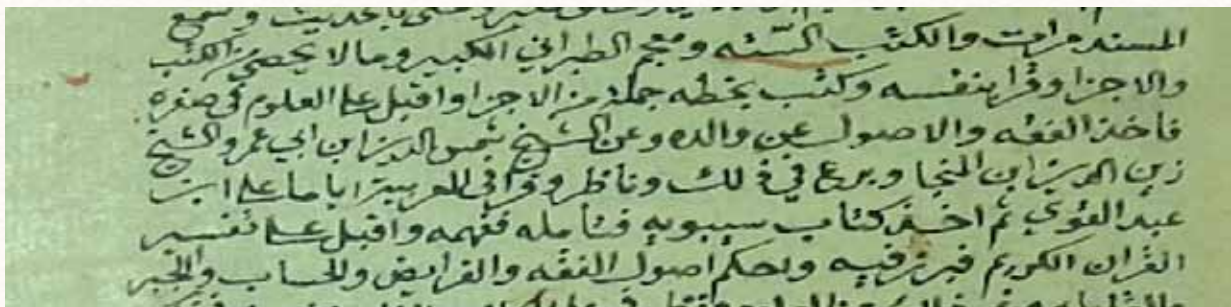 وعنى بالحديث وسمع
المسند مرات والكتب الستة ومعجم الطبراني الكبير وما لا يحصى من الكتب
والاجزا وقرا بنفسه وكتب بخطه جملة من الاجزا واقبل على العلوم في صغره
فاخذ الفقه والاصول عن والده وعن الشيخ شمس الدين ابن ابي عمر والشيخ
زين الدين ابن المنجا وبرع في ذلك وناظر وقرا في العربية اياما على ابن
عبد القوي ثم اخذ كتاب سيبويه فتامله ففهمه واقبل على تفسير
القران الكريم فبرز فيه واحكم اصول الفقه والفرايض والحساب والجبر